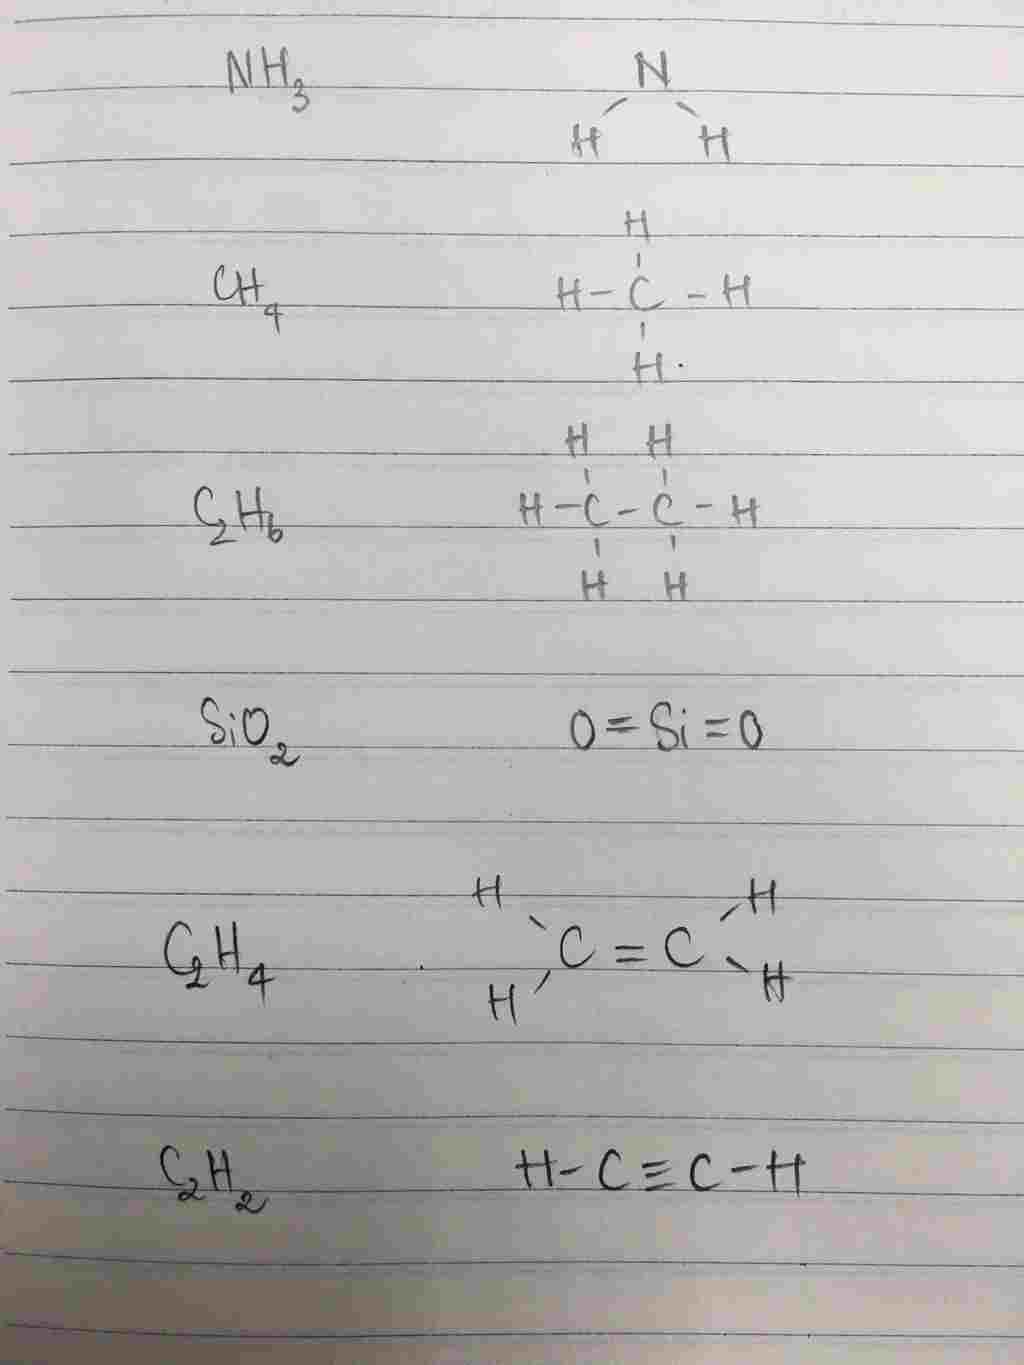 NH₃ N
H H
H
CH₄ H-C-H
H.
H H
C₂H₆ H-C-C-H
H H
SiO₂ O=Si=O
H H
C₂H₄ C=C
H H
C₂H₂ H-C≡C-H